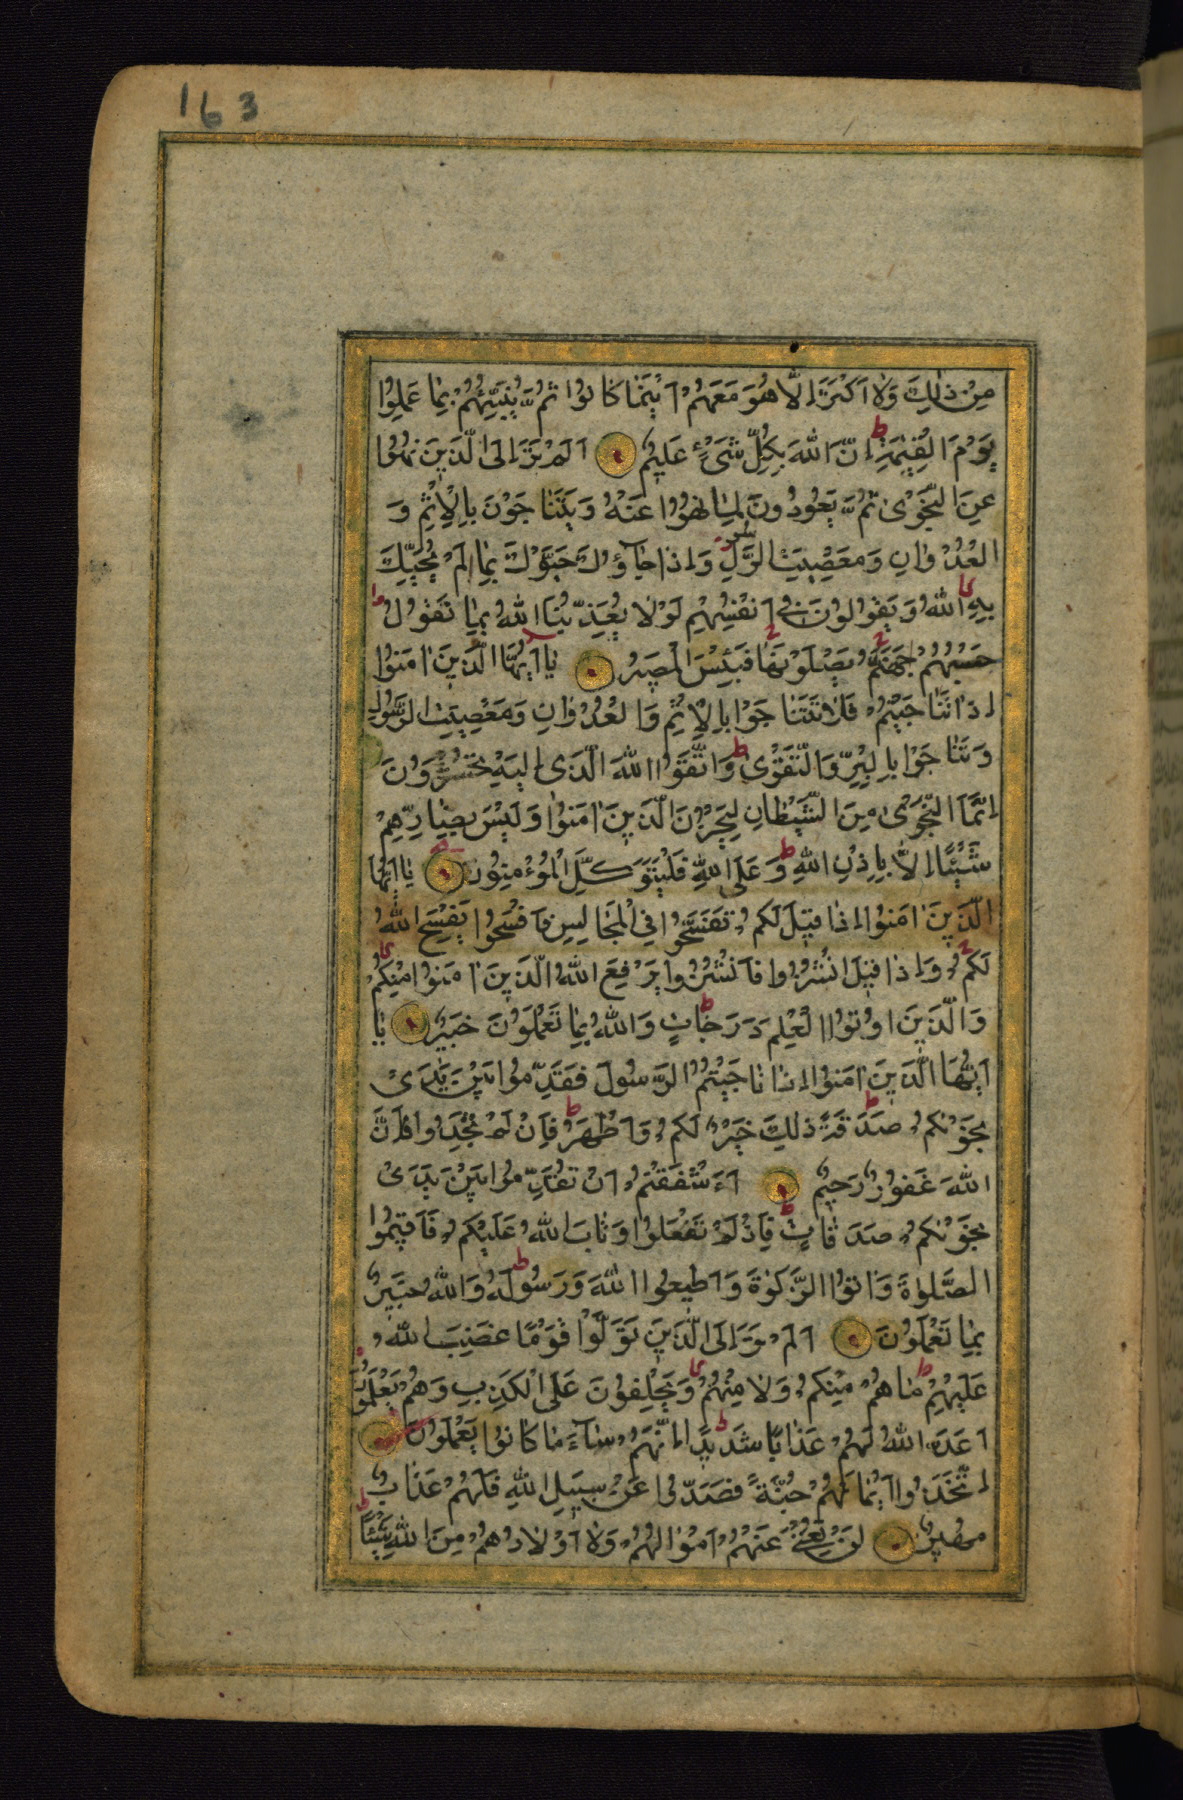 163
مِنْ ذٰلِكَ وَلَا اَكْثَرَ اِلَّا هُوَ مَعَهُمْ اَيْنَمَا كَانُوا ثُمَّ يُنَبِّئُهُمْ بِمَا عَمِلُوا
يَوْمَ الْقِيٰمَةِ ط اِنَّ اللّٰهَ بِكُلِّ شَىْءٍ عَلِيمٌ اَلَمْ تَرَ اِلَى الَّذِينَ نُهُوا
عَنِ النَّجْوٰى ثُمَّ يَعُودُونَ لِمَا نُهُوا عَنْهُ وَيَتَنَاجَوْنَ بِالْاِثْمِ وَ
الْعُدْوَانِ وَمَعْصِيَتِ الرَّسُولِ وَاِذَا جَاؤُكَ حَيَّوْكَ بِمَا لَمْ يُحَيِّكَ
بِهِ اللّٰهُ وَيَقُولُونَ فِى اَنْفُسِهِمْ لَوْلَا يُعَذِّبُنَا اللّٰهُ بِمَا نَقُولُ
حَسْبُهُمْ جَهَنَّمُ يَصْلَوْنَهَا فَبِئْسَ الْمَصِيرُ يَا اَيُّهَا الَّذِينَ اٰمَنُوا
اِذَا تَنَاجَيْتُمْ فَلَا تَتَنَاجَوْا بِالْاِثْمِ وَالْعُدْوَانِ وَمَعْصِيَتِ الرَّسُولِ
وَتَنَاجَوْا بِالْبِرِّ وَالتَّقْوٰى ط وَاتَّقُوا اللّٰهَ الَّذِى اِلَيْهِ تُحْشَرُونَ
اِنَّمَا النَّجْوٰى مِنَ الشَّيْطَانِ لِيَحْزُنَ الَّذِينَ اٰمَنُوا وَلَيْسَ بِضَارِّهِمْ
شَيْئًا اِلَّا بِاِذْنِ اللّٰهِ ط وَعَلَى اللّٰهِ فَلْيَتَوَكَّلِ الْمُؤْمِنُونَ يَا اَيُّهَا
الَّذِينَ اٰمَنُوا اِذَا قِيلَ لَكُمْ تَفَسَّحُوا فِى الْمَجَالِسِ فَافْسَحُوا يَفْسَحِ اللّٰهُ
لَكُمْ وَاِذَا قِيلَ انْشُزُوا فَانْشُزُوا يَرْفَعِ اللّٰهُ الَّذِينَ اٰمَنُوا مِنْكُمْ
وَالَّذِينَ اُوتُوا الْعِلْمَ دَرَجَاتٍ ط وَاللّٰهُ بِمَا تَعْمَلُونَ خَبِيرٌ يَا
اَيُّهَا الَّذِينَ اٰمَنُوا اِذَا نَاجَيْتُمُ الرَّسُولَ فَقَدِّمُوا بَيْنَ يَدَىْ
نَجْوٰىكُمْ صَدَقَةً ط ذٰلِكَ خَيْرٌ لَكُمْ وَاَطْهَرُ ط فَاِنْ لَمْ تَجِدُوا فَاِنَّ
اللّٰهَ غَفُورٌ رَحِيمٌ ءَاَشْفَقْتُمْ اَنْ تُقَدِّمُوا بَيْنَ يَدَىْ
نَجْوٰىكُمْ صَدَقَاتٍ ط فَاِذْ لَمْ تَفْعَلُوا وَتَابَ اللّٰهُ عَلَيْكُمْ فَاَقِيمُوا
الصَّلٰوةَ وَاٰتُوا الزَّكٰوةَ وَاَطِيعُوا اللّٰهَ وَرَسُولَهُ ط وَاللّٰهُ خَبِيرٌ
بِمَا تَعْمَلُونَ اَلَمْ تَرَ اِلَى الَّذِينَ تَوَلَّوْا قَوْمًا غَضِبَ اللّٰهُ
عَلَيْهِمْ ط مَا هُمْ مِنْكُمْ وَلَا مِنْهُمْ وَيَحْلِفُونَ عَلَى الْكَذِبِ وَهُمْ يَعْلَمُونَ
اَعَدَّ اللّٰهُ لَهُمْ عَذَابًا شَدِيدًا ط اِنَّهُمْ سَاءَ مَا كَانُوا يَعْمَلُونَ
اِتَّخَذُوا اَيْمَانَهُمْ جُنَّةً فَصَدُّوا عَنْ سَبِيلِ اللّٰهِ فَلَهُمْ عَذَابٌ
مُهِينٌ لَنْ تُغْنِىَ عَنْهُمْ اَمْوَالُهُمْ وَلَا اَوْلَادُهُمْ مِنَ اللّٰهِ شَيْئًا ط